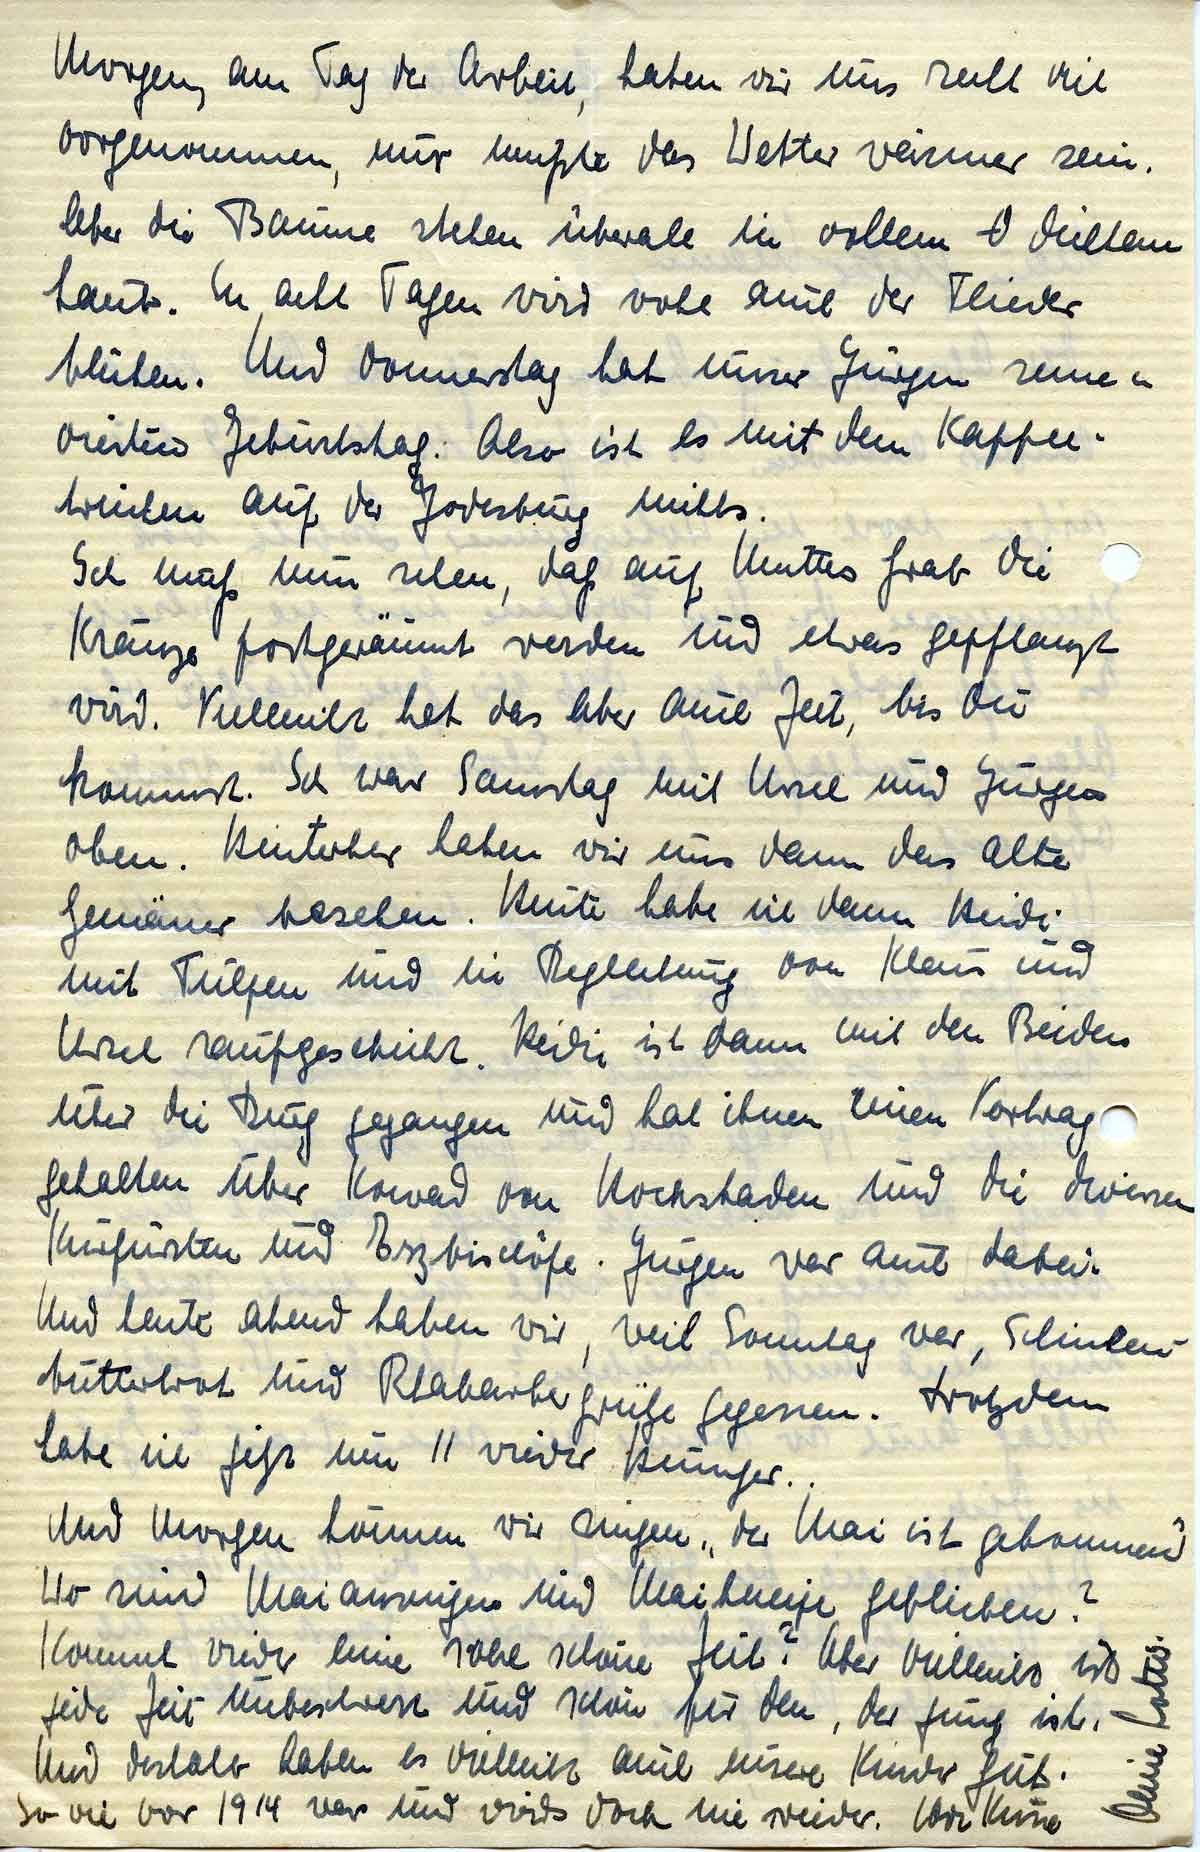 Morgen, am Tag der Arbeit, haben wir uns recht viel
vorgenommen, nur müßte das Wetter wärmer sein.
Aber die Bäume stehen überall in vollem
In acht Tagen wird wohl auch der Flieder
blühen. Und Donnerstag hat unser Jürgen seinen
vierten Geburtstag. Also ist es mit dem Kaffee-
trinken auf der Godesburg nichts.
Ich muß nun sehen, daß auf Mutters Grab die
Kränze fortgeräumt werden und etwas gepflanzt
wird. Vielleicht hat das aber auch Zeit, bis Du
kommst. Ich war Samstag mit Ursel und Jürgen
oben. Hinterher haben wir uns dann das alte
Gemäuer besehen. Heute habe ich dann Heidi
mit Tulpen und in Begleitung von Klaus und
Ursel raufgeschickt. Heidi ist dann mit den Beiden
über die Burg gegangen und hat ihnen einen Vortrag
gehalten über Konrad von Hochstaden und die diversen
Kurfürsten und Erzbischöfe. Jürgen war auch dabei.
Und heute abend haben wir, weil Sonntag war, Schinken-
butterbrot und Rhabarbergrütze gegessen. Trotzdem
habe ich jetzt um 11 wieder Hunger..
Und morgen können wir singen „der Mai ist gekommen"
Wo sind Maiansingen und Maikneipe geblieben?
Kommt wieder eine solche schöne Zeit? Aber vielleicht ist
jede Zeit unbeschwert und schön für den, der jung ist.
Und deshalb haben es vielleicht auch unsere Kinder gut.
So wie vor 1914 war und wirds doch nie wieder.
Deine Lotte.